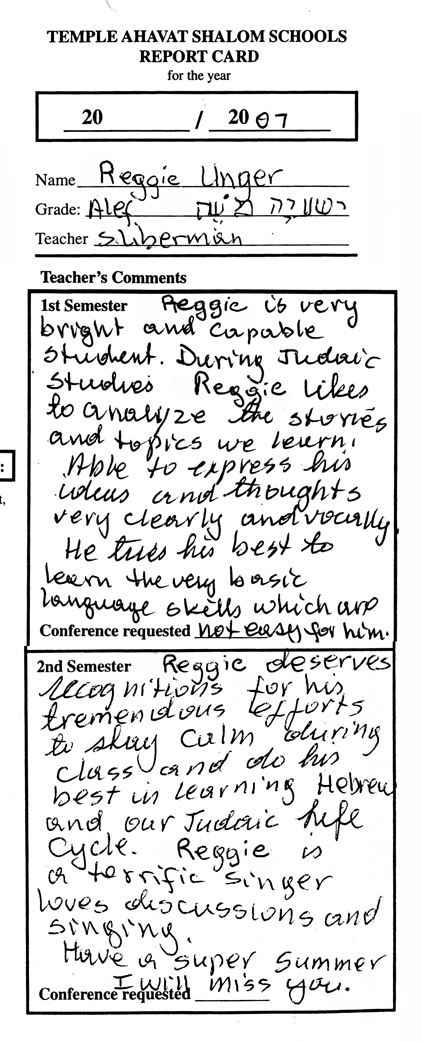 TEMPLE AHAVAT SHALOM SCHOOLS
REPORT CARD
for the year
20 / 20 07
Name Reggie Unger
Grade: Alef משה
Teacher S. Liberman
Teacher's Comments
1st Semester Reggie is very
bright and capable
student. During Judaic
Studies Reggie likes
to analyze the stories
and topics we learn.
Able to express his
ideas and thoughts
very clearly and vocally.
He tries his best to
learn the very basic
language skills which are
Conference requested not easy for him.
2nd Semester Reggie deserves
recognitions for his
tremendous efforts
to stay calm during
class and do his
best in learning Hebrew
and our Judaic Life
Cycle. Reggie is
a terrific singer
loves discussions and
singing.
Have a super summer
I will miss you.
Conference requested
:
t,